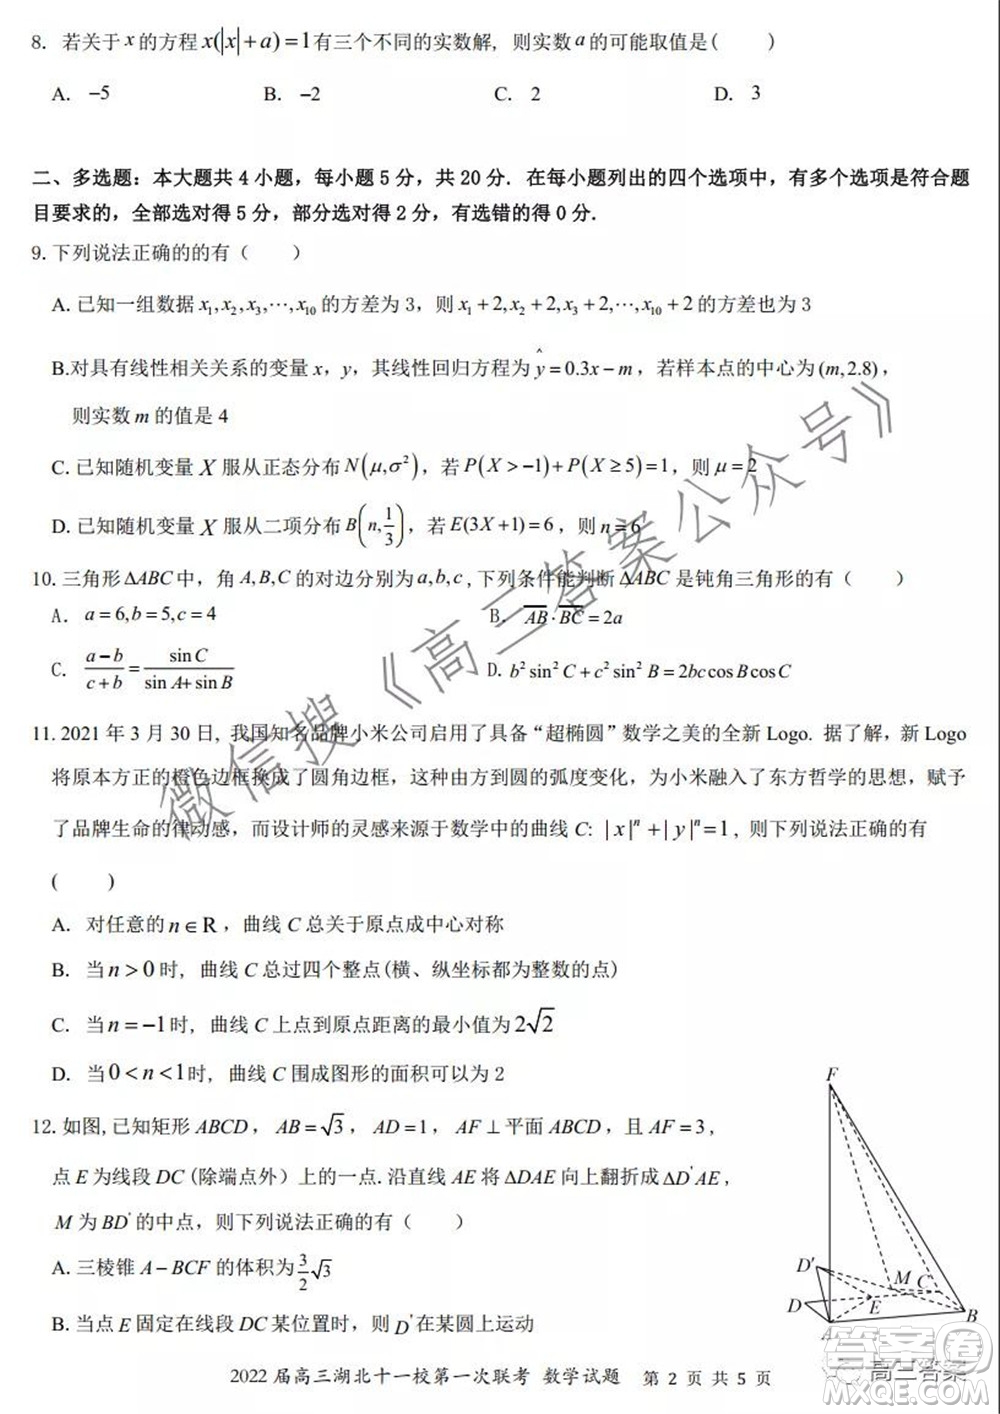 8. 若关于 x 的方程 x(|x|+a)=1 有三个不同的实数解, 则实数 a 的可能取值是(    )
A. −5    B. −2    C. 2    D. 3
二、多选题：本大题共 4 小题，每小题 5 分，共 20 分．在每小题列出的四个选项中，有多个选项是符合题
目要求的，全部选对得 5 分，部分选对得 2 分，有选错的得 0 分．
9.下列说法正确的的有（    ）
A.已知一组数据 x₁,x₂,x₃,⋯,x₁₀ 的方差为 3，则 x₁+2,x₂+2,x₃+2,⋯,x₁₀+2 的方差也为 3
B.对具有线性相关关系的变量 x，y，其线性回归方程为 ŷ=0.3x−m，若样本点的中心为 (m,2.8)，
则实数 m 的值是 4
C.已知随机变量 X 服从正态分布 N(μ,σ²)，若 P(X>−1)+P(X≥5)=1，则 μ=2
D.已知随机变量 X 服从二项分布 B(n,1/3)，若 E(3X+1)=6，则 n=6
10.三角形 ΔABC 中，角 A,B,C 的对边分别为 a,b,c,下列条件能判断 ΔABC 是钝角三角形的有（    ）
A. a=6,b=5,c=4    B. AB·BC=2a
C. (a−b)/(c+b)=sinC/(sinA+sinB)    D. b²sin²C+c²sin²B=2bccosBcosC
11.2021 年 3 月 30 日, 我国知名品牌小米公司启用了具备“超椭圆”数学之美的全新 Logo. 据了解，新 Logo
将原本方正的橙色边框换成了圆角边框，这种由方到圆的弧度变化，为小米融入了东方哲学的思想，赋予
了品牌生命的律动感，而设计师的灵感来源于数学中的曲线 C: |x|ⁿ+|y|ⁿ=1, 则下列说法正确的有
(    )
A. 对任意的 n∈R，曲线 C 总关于原点成中心对称
B. 当 n>0 时, 曲线 C 总过四个整点(横、纵坐标都为整数的点)
C. 当 n=−1 时, 曲线 C 上点到原点距离的最小值为 2√2
D. 当 0<n<1 时, 曲线 C 围成图形的面积可以为 2
12.如图,已知矩形 ABCD，AB=√3，AD=1，AF⊥平面 ABCD，且 AF=3，
点 E 为线段 DC(除端点外）上的一点.沿直线 AE 将 ΔDAE 向上翻折成 ΔD'AE，
M 为 BD' 的中点，则下列说法正确的有（    ）
A.三棱锥 A−BCF 的体积为 3/2√3
B.当点 E 固定在线段 DC 某位置时，则 D' 在某圆上运动
F
D'
M
C
D
E
A
B
2022 届高三湖北十一校第一次联考 数学试题 第 2 页 共 5 页
微信搜《高三答案公众号》
高三答案